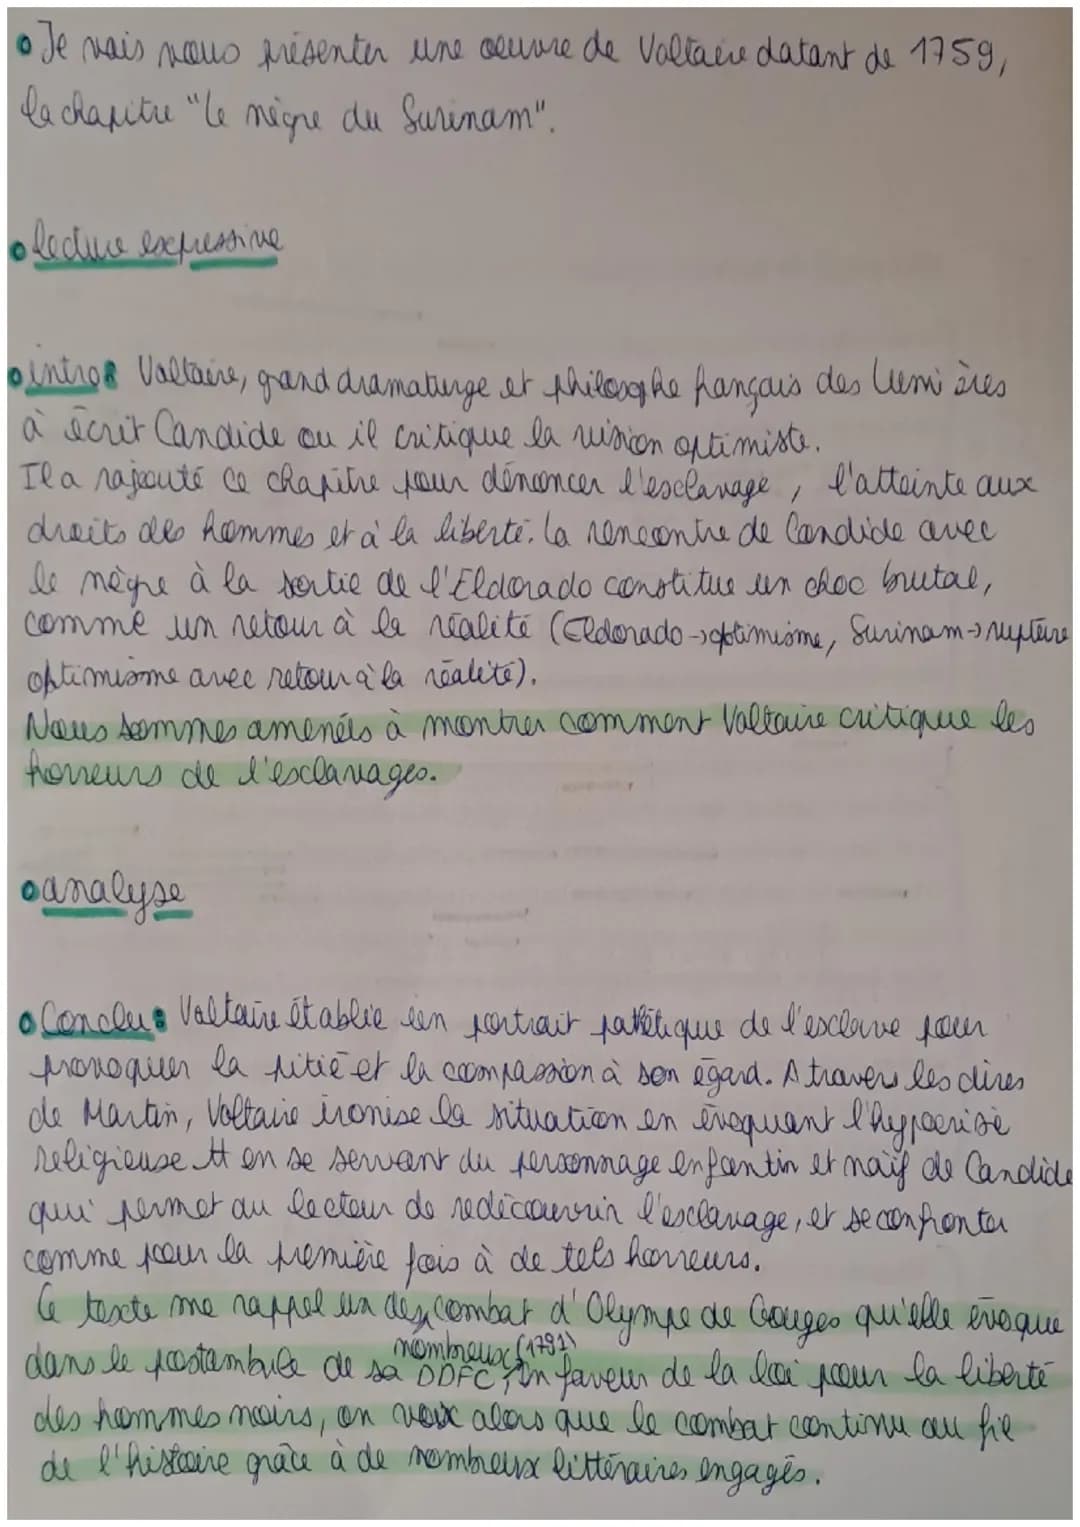 Je vais vous présenter une oeuvre de Voltaire datant de 1759,
la chapitre "le nègre du Surinam".
lecture expressive
intro: Voltaire, grand dramaturge et philosophe français des Lumières
à écrit Candide ou il critique la vision optimiste.
Il a rajouté ce chapitre pour dénoncer l'esclavage, l'atteinte aux
droits des hommes et à la liberté. La rencontre de Candide avec
le nègre à la sortie de l'Eldorado constitue un choc brutal,
comme un retour à la réalité (Eldorado → optimisme, Surinam → rupture
optimisme avec retour à la réalité).
Nous sommes amenés à montrer comment Voltaire critique les
horreurs de l'esclavages.
analyse
Conclu: Voltaire établie un portrait pathétique de l'esclave pour
provoquer la pitié et la compassion à son égard. A travers les dires
de Martin, Voltaire ironise la situation en évoquant l'hypocrisie
religieuse et en se servant du personnage enfantin et naïf de Candide
qui permet au lecteur de redécouvrir l'esclavage, et se confronter
comme pour la première fois à de tels horreurs.
Ce texte me rappel un des combat d'Olympe de Gouges qu'elle évoque
nombreux (1791)
dans le postambule de sa DDFC, en faveur de la loi pour la liberté
des hommes noirs, on voix alors que le combat continu au fil
de l'histoire grâce à de nombreux littéraires engagés.